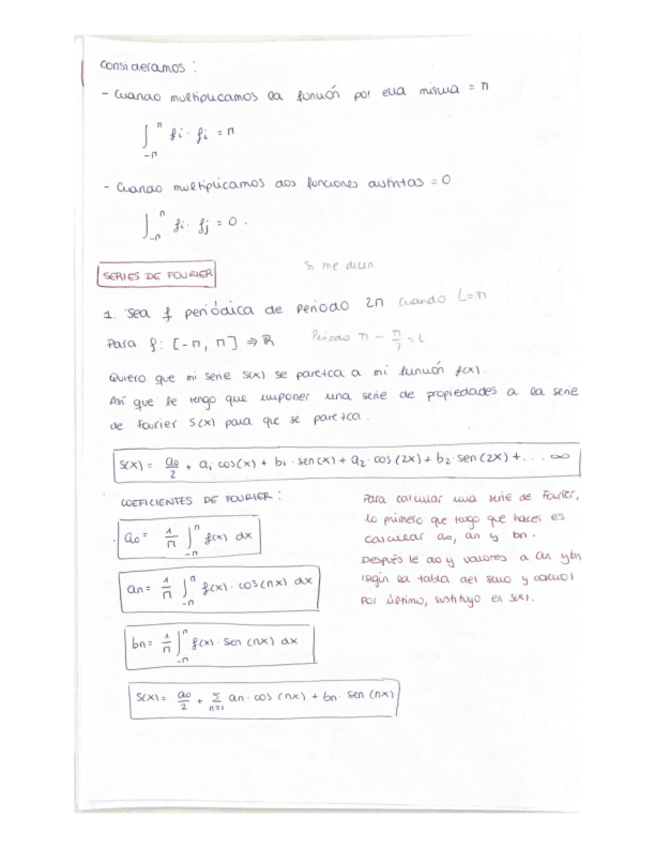 Consideramos:
- Cuando multiplicamos la función por ella misma = π
∫_{-π}^{π} fi · fi = π
- Cuando multiplicamos dos funciones distintas = 0
∫_{-π}^{π} fi · fj = 0.
SERIES DE FOURIER
Si me dicen
1. Sea f periódica de periodo 2π cuando L=π
Para f: [-π, π] ⇒ ℝ Periodo π - π/2 = L
Quiero que mi serie S(x) se parezca a mi función f(x).
Así que le tengo que imponer una serie de propiedades a la serie
de Fourier S(x) para que se parezca.
S(x) = a0/2 + a1 cos(x) + b1 · sen(x) + a2 · cos(2x) + b2 · sen(2x) + . . . ∞
COEFICIENTES DE FOURIER:
a0 = 1/π ∫_{-π}^{π} f(x) dx
an = 1/π ∫_{-π}^{π} f(x) · cos(nx) dx
bn = 1/π ∫_{-π}^{π} f(x) · sen(nx) dx
S(x) = a0/2 + Σ_{n≥1} an · cos(nx) + bn · sen(nx)
Para calcular una serie de Fourier,
lo primero que tengo que hacer es
calcular a0, an y bn.
Después le doy valores a an y bn
según la tabla del seno y coseno
Por último, sustituyo en S(x).